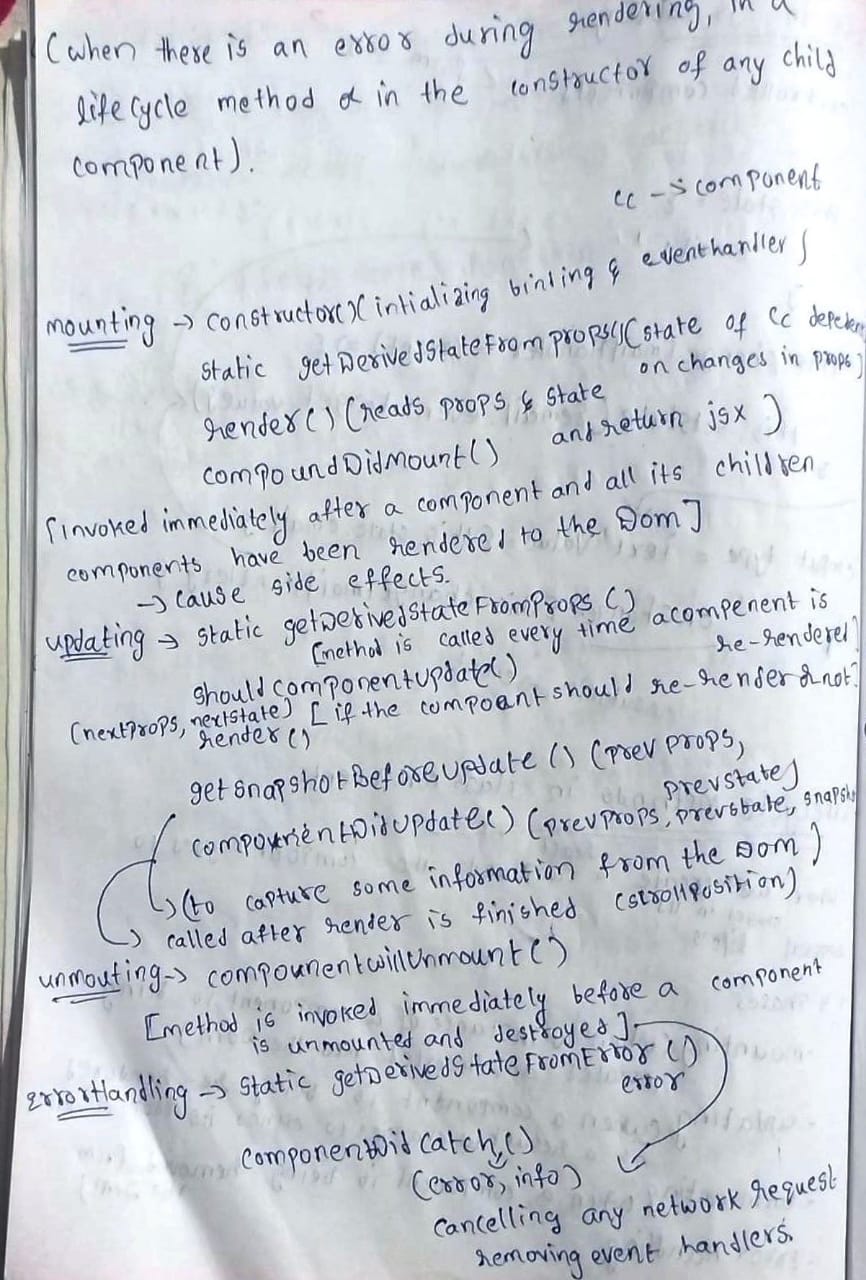 (when there is an error during rendering, in a
life cycle method or in the constructor of any child
component).
cc -> component
mounting -> constructor()(intializing binding & eventhandler)
static getDerivedStateFromprops()(state of cc depeden
on changes in props)
render() (reads props & state
and return jsx)
compoundDidMount()
[invoked immediately after a component and all its children
components have been rendered to the Dom]
-> cause side effects.
updating -> static getDerivedStateFromProps ()
[method is called every time acompenent is
re-rendered]
shouldcomponentupdate()
(nextProps, nextstate) [if the compoant should re-render or not]
render()
getSnapshotBeforeUpdate () (prev props,
prevstate)
compounentDidUpdate() (prevProps, prevstate, snapsh
(to capture some information from the Dom)
called after render is finished (strollPosition)
unmouting-> compounentwillUnmount()
[method is invoked immediately before a component
is unmounted and destroyed].
ErrorHandling -> static getDerivedStateFromError ()
error
componentDid catch()
(error, info)
cancelling any network request
removing event handlers.